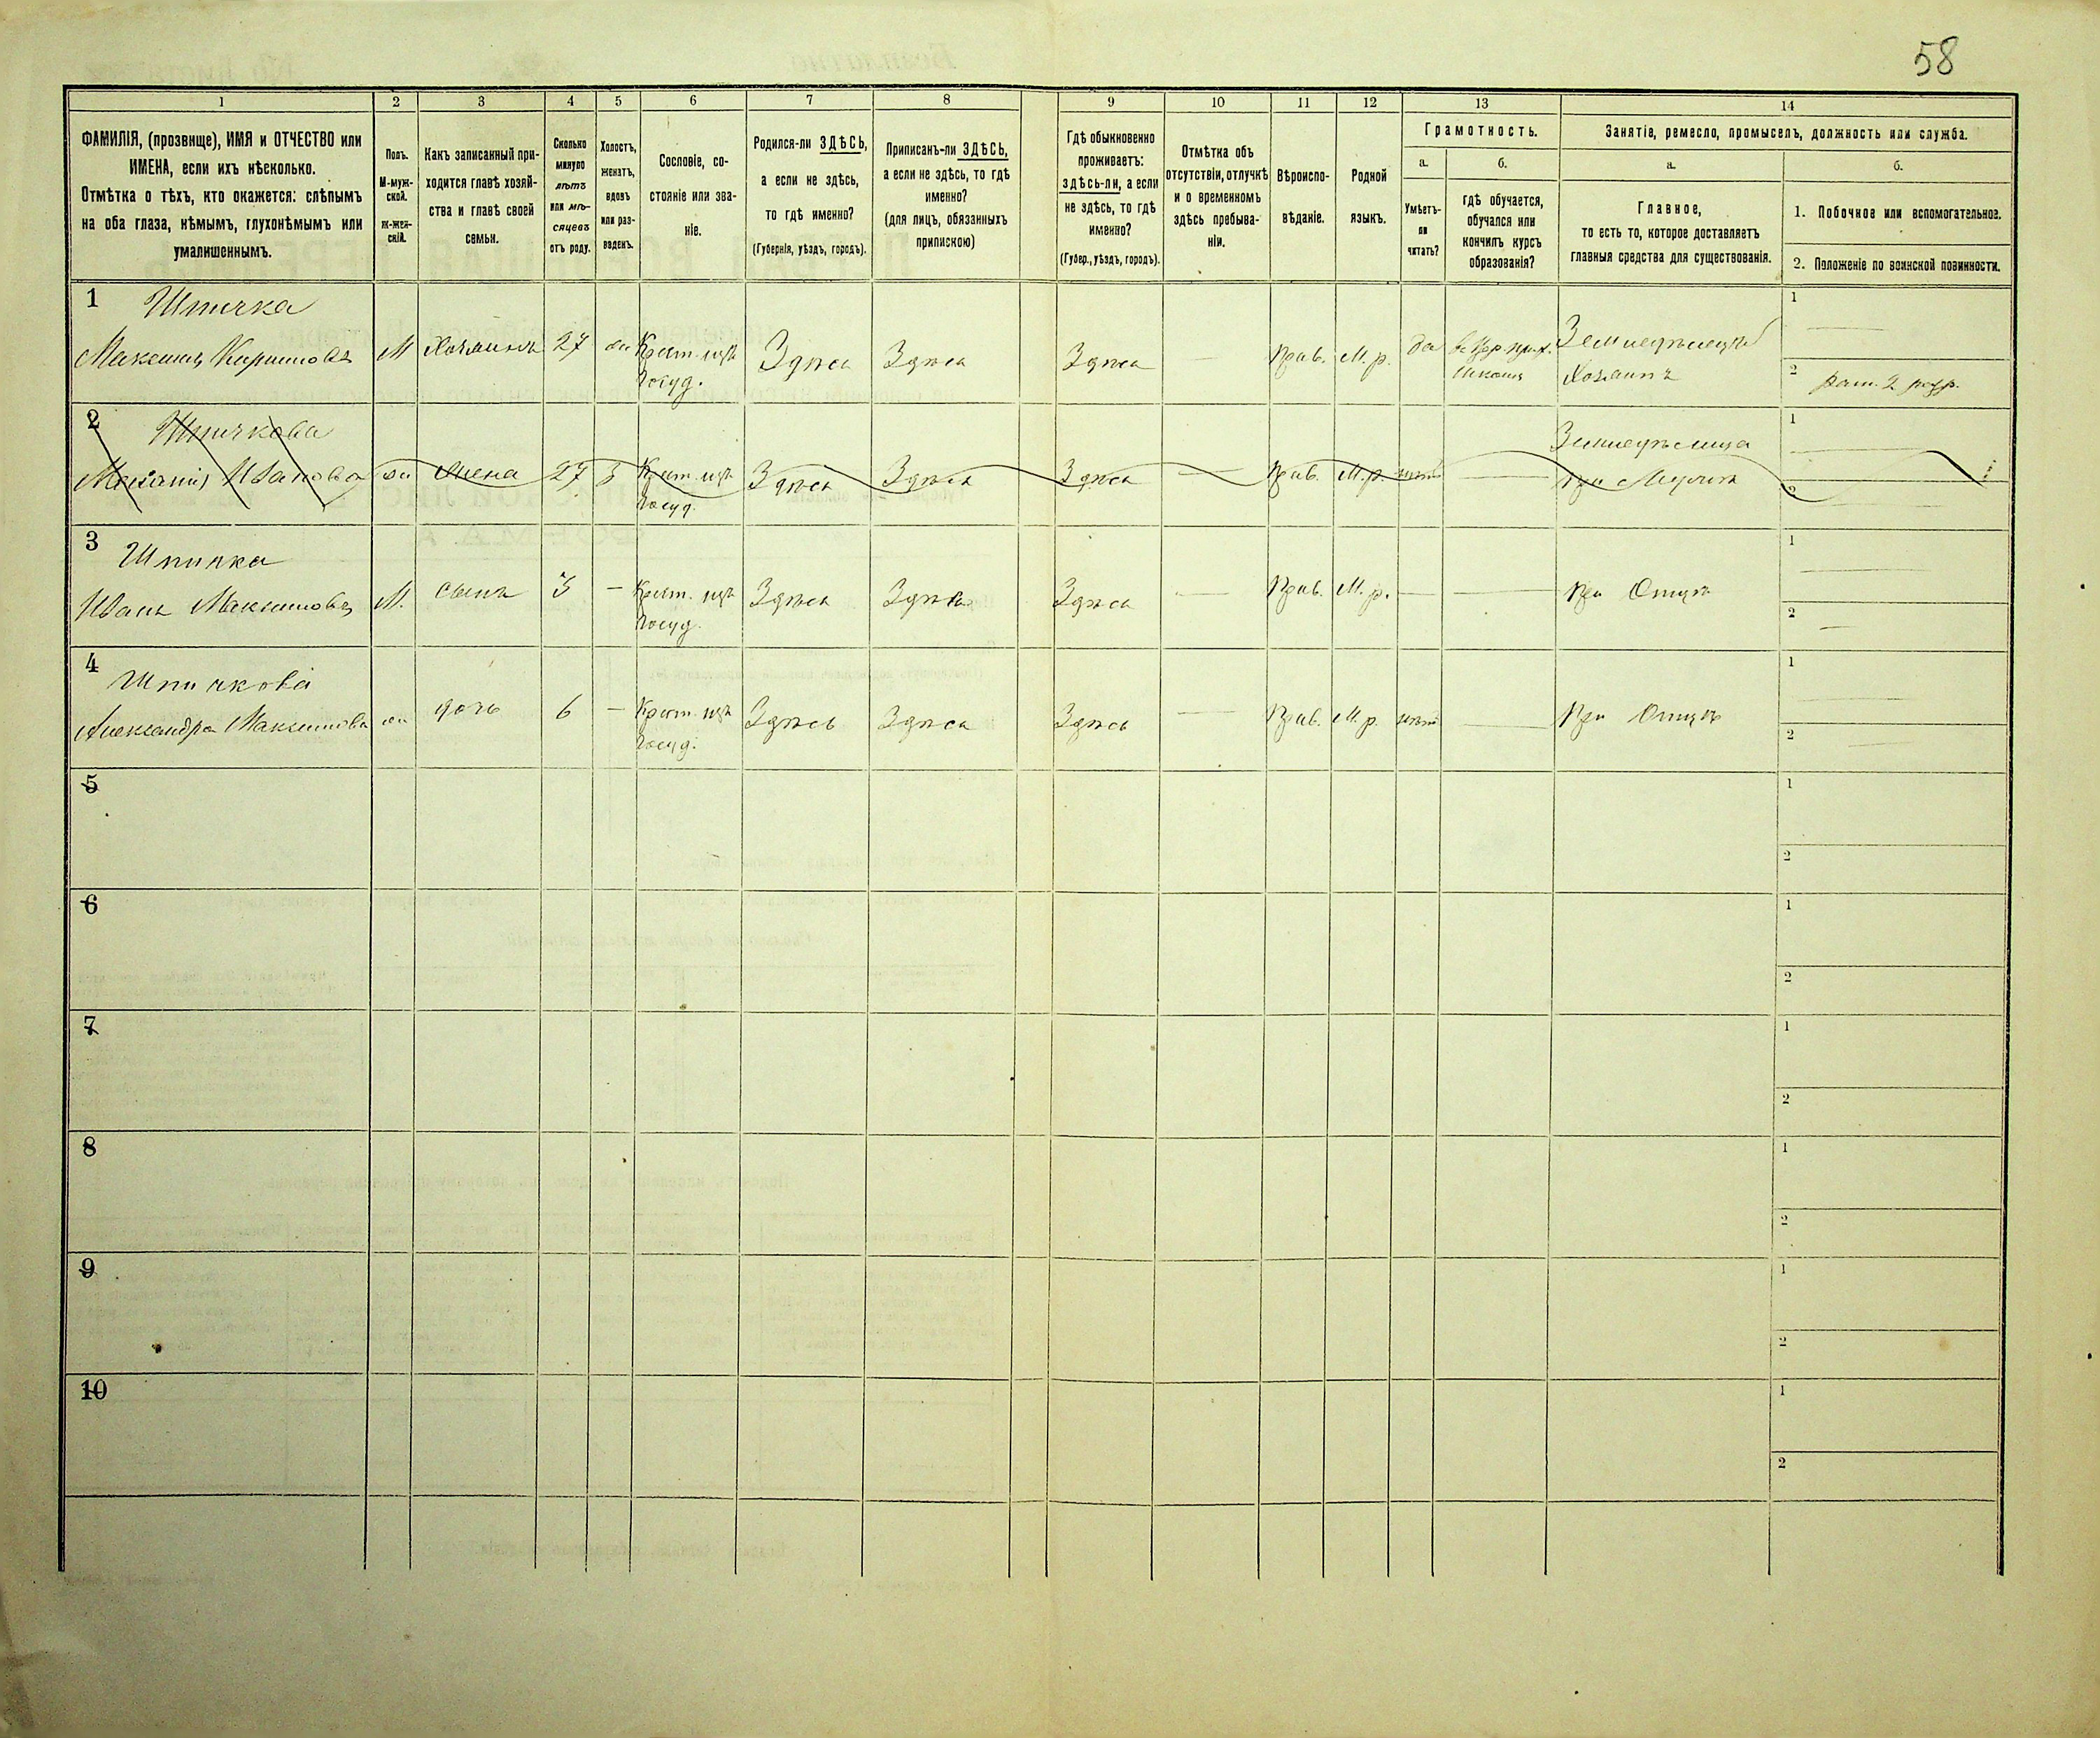 58
1 2 3 4 5 6 7 8 9 10 11 12 13 14
ФАМИЛІЯ, (прозвище), ИМЯ и ОТЧЕСТВО или
ИМЕНА, если ихъ нѣсколько.
Отмѣтка о тѣхъ, кто окажется: слѣпымъ
на оба глаза, нѣмымъ, глухонѣмымъ или
умалишеннымъ.
Полъ.
М-муж-
ской.
ж-жен-
скій.
Какъ записанный при-
ходится главѣ хозяй-
ства и главѣ своей
семьи.
Сколько
минуло
лѣтъ
или мѣ-
сяцевъ
отъ роду.
Холостъ,
женатъ,
вдовъ
или раз-
веденъ.
Сословіе, со-
стояніе или зва-
ніе.
Родился-ли ЗДѢСЬ,
а если не здѣсь,
то гдѣ именно?
(Губернія, уѣздъ, городъ).
Приписанъ-ли ЗДѢСЬ,
а если не здѣсь, то гдѣ
именно?
(для лицъ, обязанныхъ
припискою)
Гдѣ обыкновенно
проживаетъ:
здѣсь-ли, а если
не здѣсь, то гдѣ
именно?
(Губер., уѣздъ, городъ).
Отмѣтка объ
отсутствіи, отлучкѣ
и о временномъ
здѣсь пребыва-
ніи.
Вѣроиспо-
вѣданіе.
Родной
языкъ.
Грамотность.
а.
Умѣетъ-
ли
читать?
б.
гдѣ обучается,
обучался или
кончилъ курсъ
образованія?
Занятіе, ремесло, промыселъ, должность или служба.
а.
Главное,
то есть то, которое доставляетъ
главныя средства для существованія.
б.
1. Побочное или вспомогательное.
2. Положеніе по воинской повинности.
1 Шпичка
Максимъ Кириловъ М Хозяинъ 27 ж Крест. изъ Здѣсь Здѣсь Здѣсь — Прав. М. р. да
госуд.
школѣ
Земледѣлецъ
Хозяинъ
1 —
2 рат. 2 разр.
2 Шпичкова
Иванова ж жена 27 З Крест. изъ Здѣсь Здѣсь Здѣсь — Прав. М. р. нѣтъ —
госуд.
Земледѣлица
при Мужѣ
1 —
2 —
3 Шпичка
Иванъ Максимовъ М. сынъ 3 — Крест. изъ Здѣсь Здѣсь Здѣсь — Прав. М. р. — — при Отцѣ
госуд.
1 —
2 —
4 Шпичкова
Александра Максимова ж дочь 6 — Крест. изъ Здѣсь Здѣсь Здѣсь — Прав. М. р. нѣтъ — При Отцѣ
госуд.
1 —
2 —
5
1
2
6
1
2
7
1
2
8
1
2
9
1
2
10
1
2